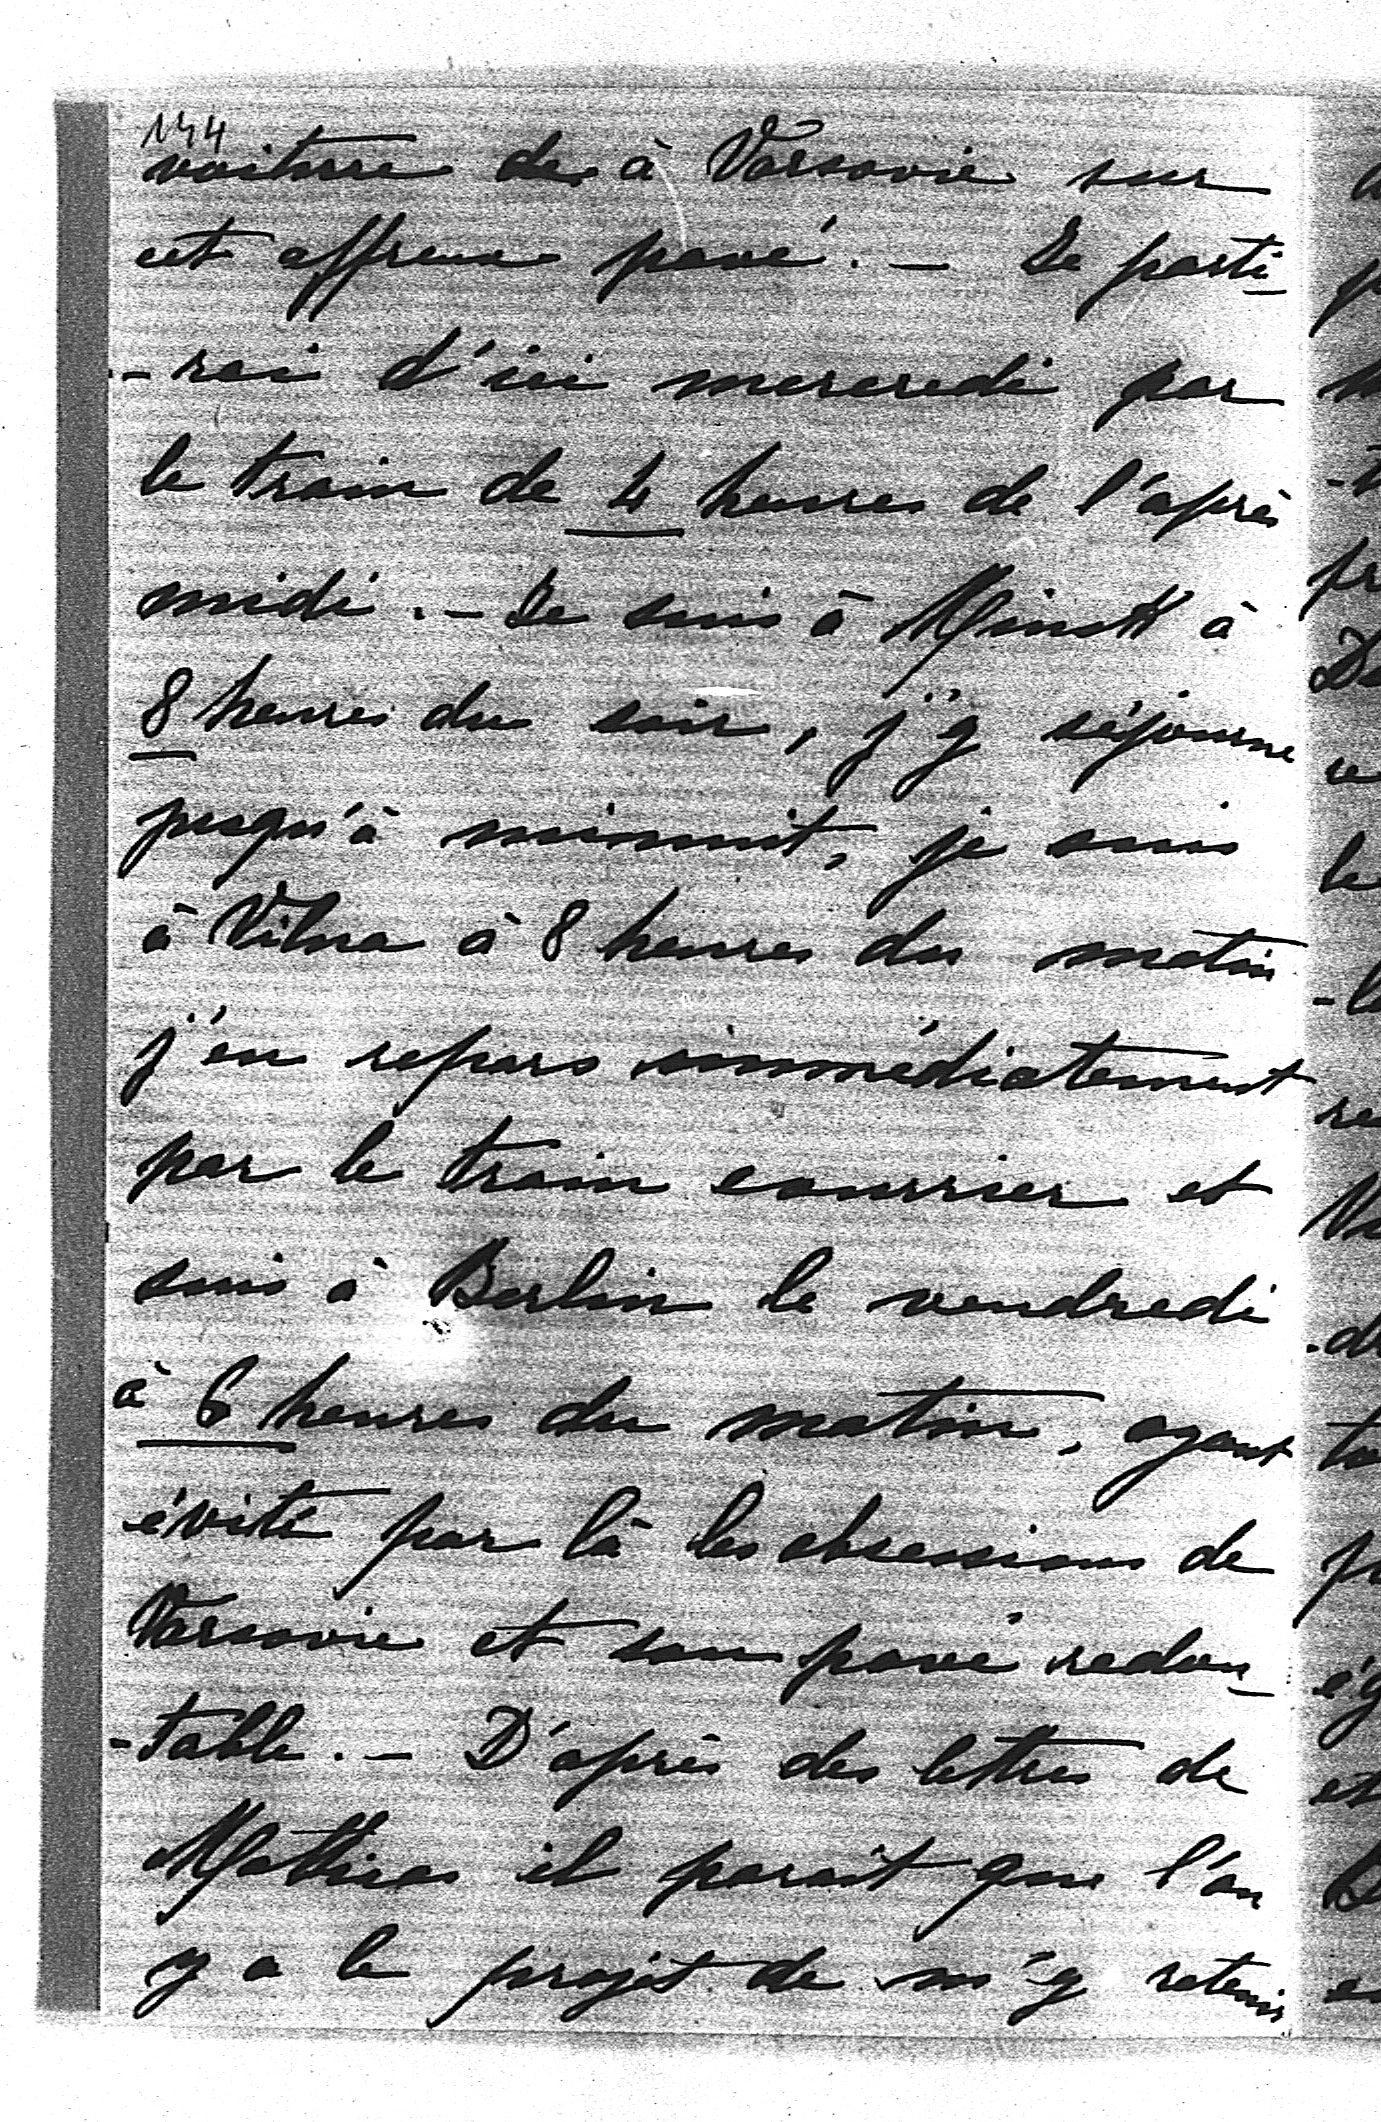 144
voiture de à Varsovie sur
cet affreux pavé. — Je parti
- rai d'ici mercredi par
le train de 4 heures de l'après
midi. — Je suis à Minsk à
8 heures du soir, j'y séjourne
jusqu'à minuit, je suis
à Vilna à 8 heures du matin
j'en repars immédiatement
par le train courrier et
suis à Berlin le vendredi
à 6 heures du matin, ayant
évité par là les obsessions de
Varsovie et son pavé redou
- table. — D'après des lettres de
Matthias il parait que l'on
y a le projet de m'y retenir